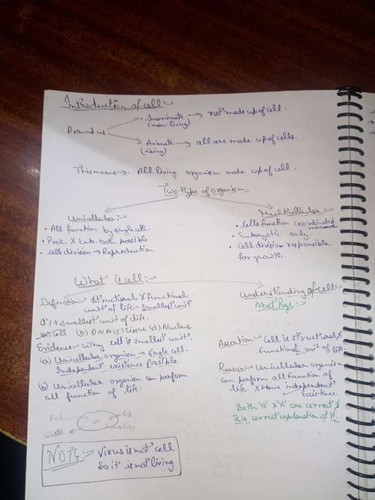 Introduction of cell :-
Around us
Inanimate → not made up of cell.
(non living)
Animate → all are made up of cells.
(living)
This means → All living organism made up of cell.
Two type of organism
Unicellular :-
• All function by single cell.
• Prok. & Euk. both possible
• cell division → Reproduction
Multicellular :-
• Cells function coordinated
• Eukaryotic only
• Cell division responsible
for growth.
What is cell :-
Definition → structural & functional
unit of life - smallest unit
Q:- smallest unit of life.
(a) Cell (b) DNA (c) tissue (d) Nucleus
Evidence - Why cell is smallest unit.
(a) Unicellular organism → single cell
Independent existence possible
(b) Unicellular organism can perform
all function of life
Understanding of cell
Next Page
Assertion Cell is structural &
functional unit of life
Reason- Unicellular organism
can perform all function of
life & Have independent
existence.
Both 'A' & 'R' are correct &
R is correct explanation of 'A'
NOTE:- Virus is not cell
So it is not living